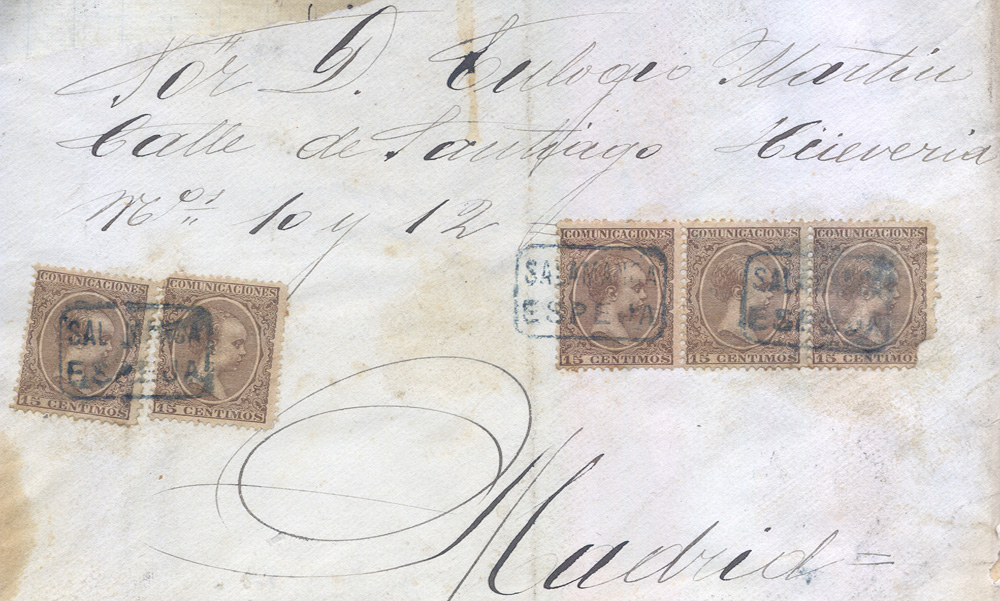 Sor D. Eulogio Martin
Calle de Santiago Hüeveria
Nos 10 y 12
COMUNICACIONES
15 CENTIMOS
COMUNICACIONES
15 CENTIMOS
SALAMANCA
ESPEJA
COMUNICACIONES
15 CENTIMOS
COMUNICACIONES
15 CENTIMOS
COMUNICACIONES
15 CENTIMOS
SALAMANCA
ESPEJA
SALAMANCA
ESPEJA
Madrid =